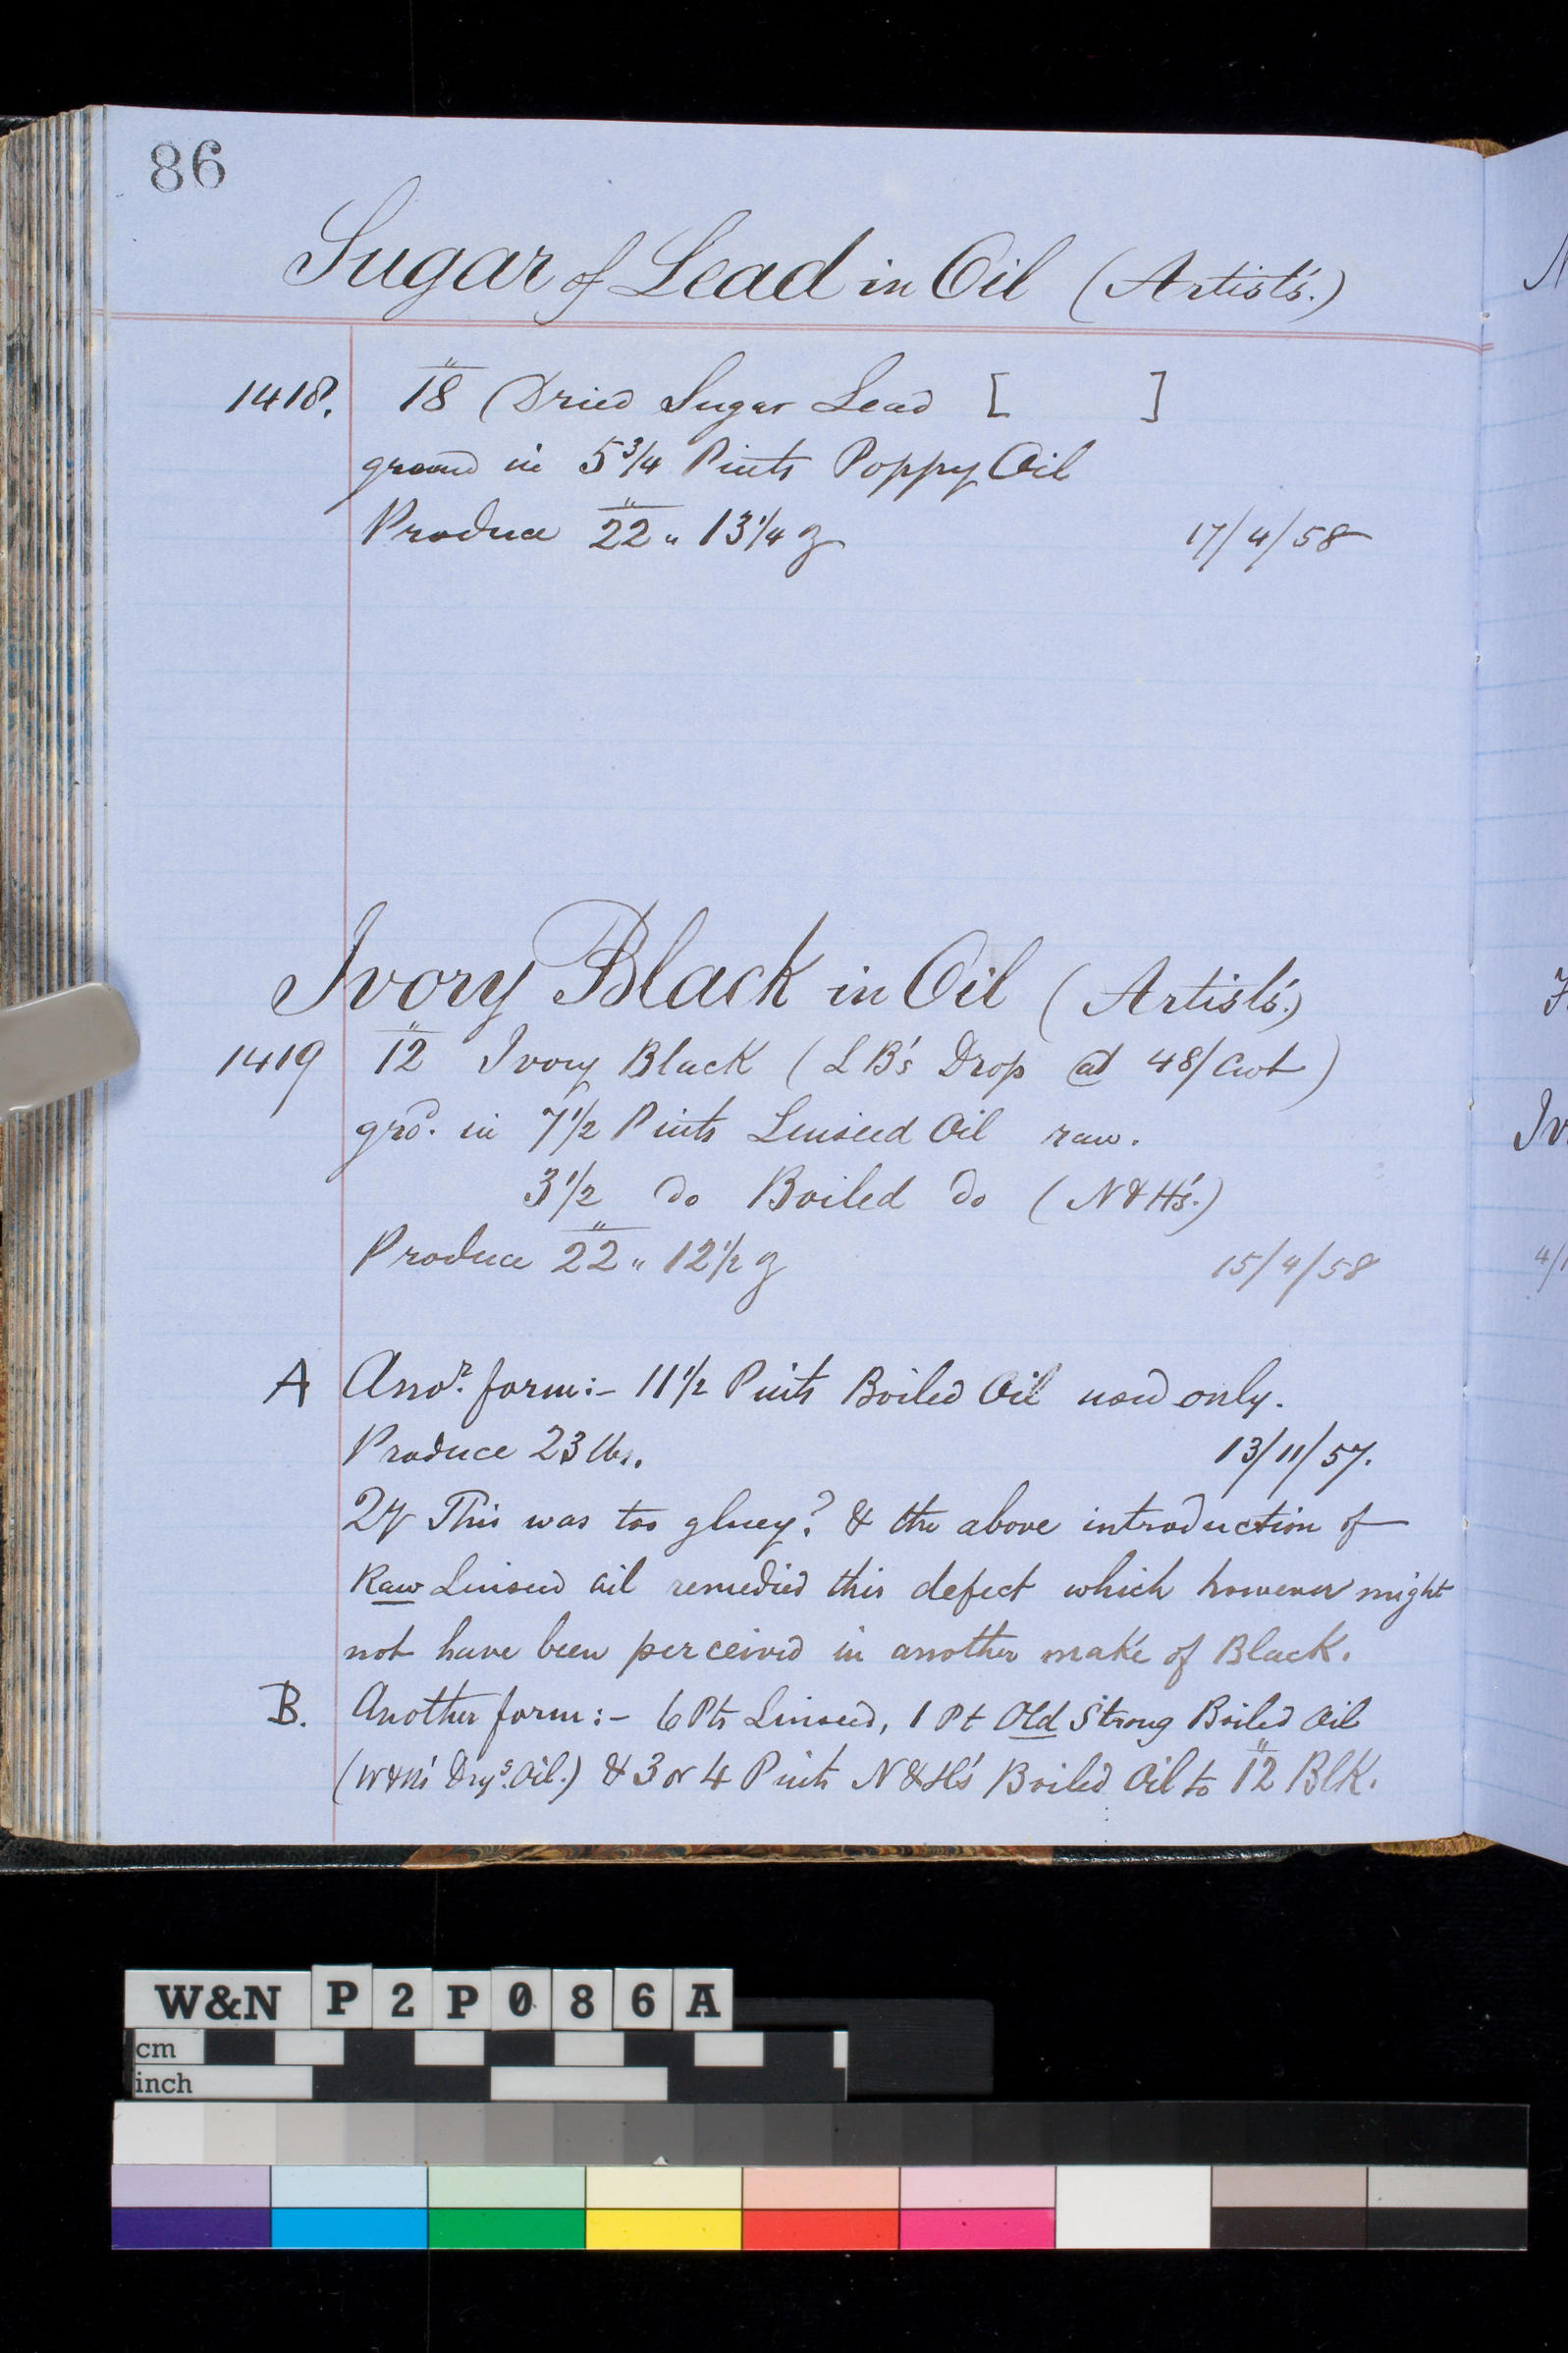 86
Sugar of Lead in Oil (Artists'.)
1418. 18" Dried Sugar Lead [ ]
ground in 5 3/4 Pints Poppy Oil
Produce 22" " 13 1/4 z 17/4/58
Ivory Black in Oil (Artists'.)
1419 12" Ivory Black (LB's Drop @ 48/ Cwt)
grd. in 7 1/2 Pints Linseed Oil raw.
3 1/2 do Boiled do (N & H's.)
Produce 22" " 12 1/2 z 15/4/58
A Anor. form:- 11 1/2 Pints Boiled Oil used only.
Produce 23 lbs. 13/11/57.
Qy This was too gluey? & the above introduction of
Raw Linseed oil remedied this defect which however might
not have been perceived in another make of Black.
B. Another form:- 6 Pts Linseed, 1 Pt Old Strong Boiled Oil
(W&N's Dryg. Oil.) & 3 or 4 Pints N & H's Boiled Oil to 12" Blk.
W&N P2P086A
cm
inch